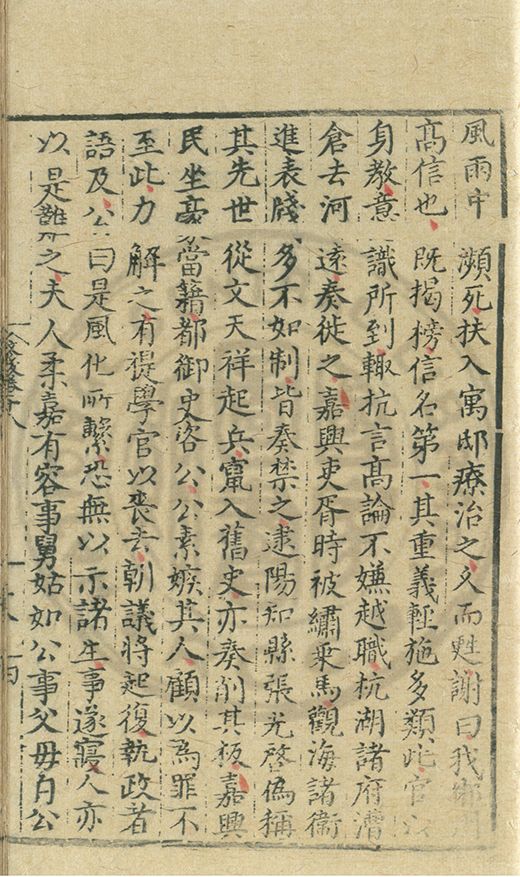 風雨中瀕死扶入寓邸療治之久而甦謝曰我鄉
高信也既揭榜信名第一其重義輕施多類此官以
身教意識所到輙抗言高論不嫌越職杭湖諸府漕
倉去河遠奏徙之嘉興吏胥時被繡乘馬觀海諸衛
進表牋多不如制皆奏禁之逮陽知縣張光啓偽稱
其先世從文天祥起兵竄入舊史亦奏削其板嘉興
民坐豪當籍都御史咨公公素嫉其人顧以為罪不
至此力解之有提學官以喪去朝議將起復執政者
語及公公曰是風化所繫恐無以示諸生事遂寢人亦
以是難之夫人柔嘉有容事舅姑如公事父毋自公